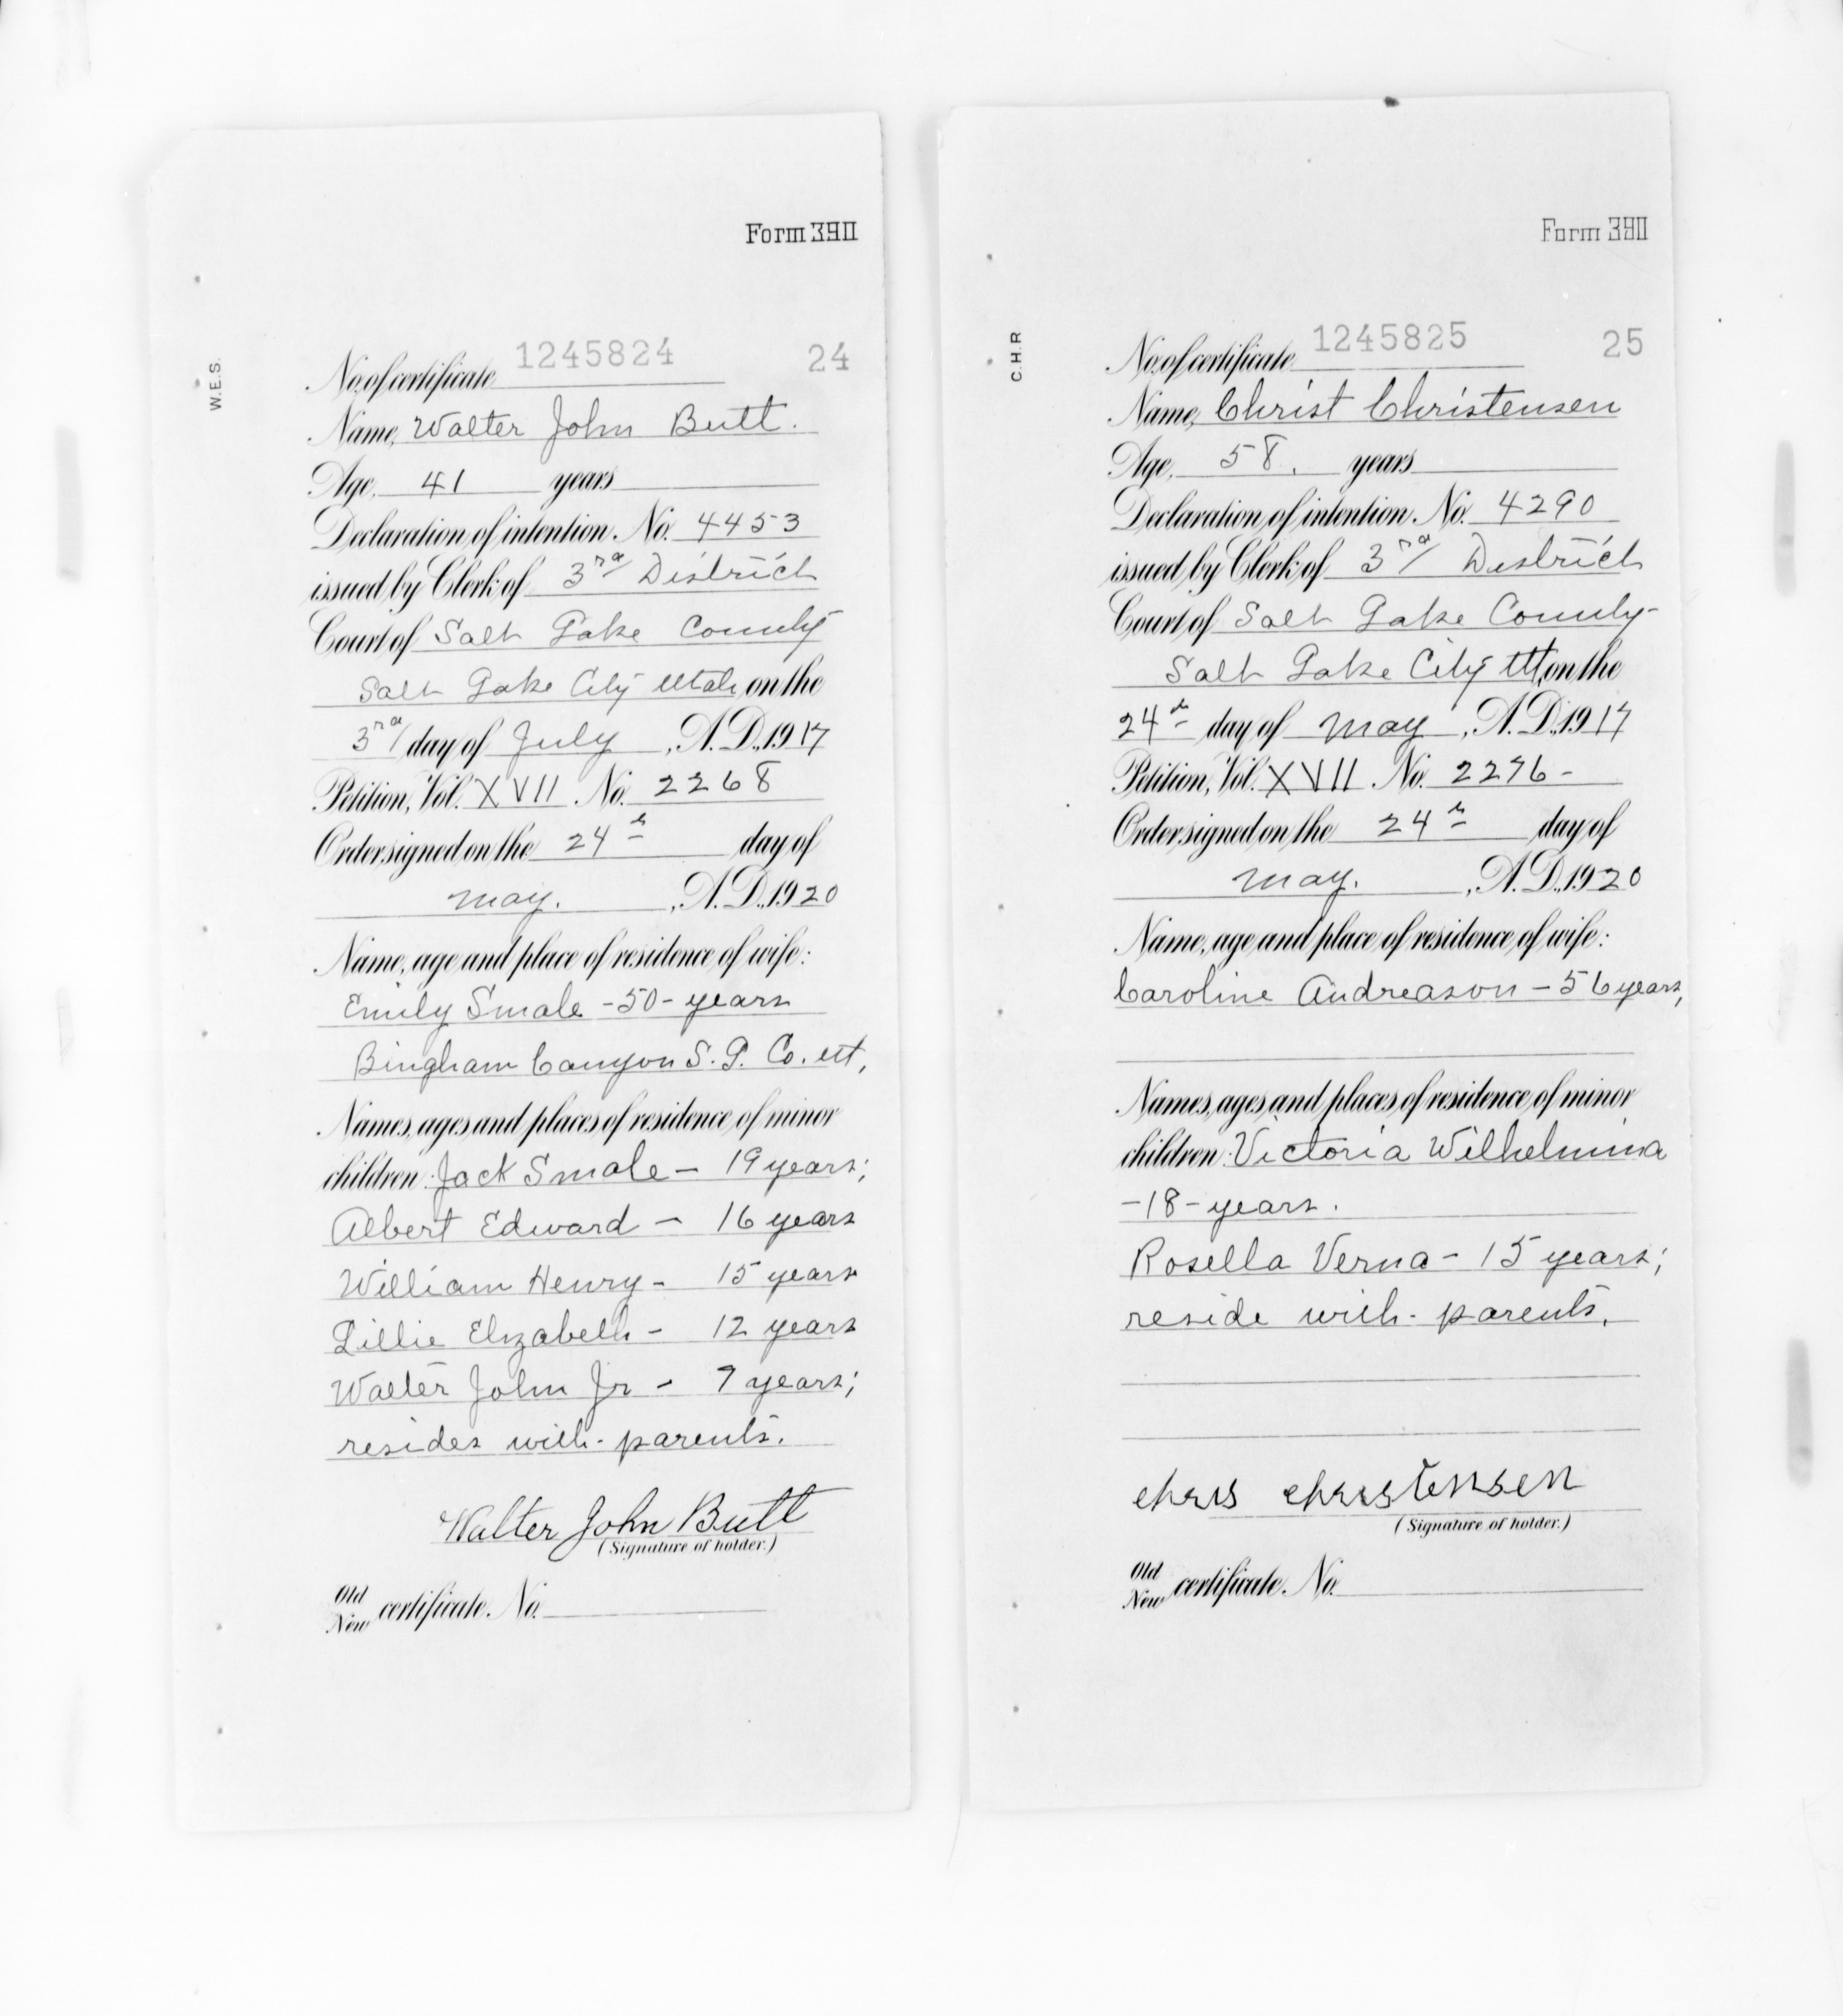 Form 390
W.E.S.
No. of certificate 1245824 24
Name, Walter John Butt.
Age, 41 years
Declaration of intention. No. 4453
issued by Clerk of 3rd District
Court of Salt Lake County
Salt Lake City Utah, on the
3rd day of July, A.D., 1917
Petition, Vol. XVII No. 2268
Order signed on the 24th day of
May., A.D., 1920
Name, age and place of residence of wife:
Emily Smale -50- years
Bingham Canyon S.L. Co. Ut,
Names, ages and places of residence of minor
children: Jack Smale - 19 years;
Albert Edward - 16 years
William Henry - 15 years
Lillie Elizabeth - 12 years
Walter John Jr - 7 years;
resides with parents.
Walter John Butt
(Signature of holder.)
Old
New certificate. No.
Form 390
C.H.R
No. of certificate 1245825 25
Name, Christ Christensen
Age, 58. years
Declaration of intention. No. 4290
issued by Clerk of 3rd District
Court of Salt Lake County
Salt Lake City Ut, on the
24th day of May, A.D., 1917
Petition, Vol. XVII No. 2276-
Order signed on the 24th day of
May., A.D., 1920
Name, age and place of residence of wife:
Caroline Andreason - 56 years,
Names, ages and places of residence of minor
children: Victoria Wilhelmina
-18- years.
Rosella Verna - 15 years;
reside with parents.
Chris Christensen
(Signature of holder.)
Old
New certificate. No.